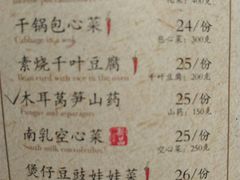 干锅包心菜 24/份
Cabbage in a wok 包心菜:300克
素烧千叶豆腐 25/份
Bean curd with rice in the oven 千叶豆腐:200克
✓木耳莴笋山药 25/份
Fungus and asparagus 山药:150克
南乳空心菜 25/份
South milk convolvulus 空心菜:250克
煲仔豆豉娃娃菜 26/份